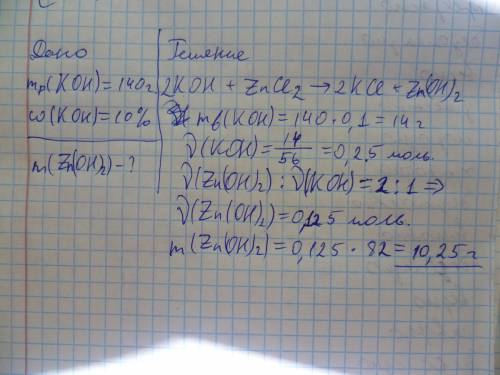 Дано
mр(KOH)=140г
ω(KOH)=10%
m(Zn(OH)₂)-?
Решение
2KOH + ZnCl₂ → 2KCl + Zn(OH)₂
mв(KOH)=140·0,1=14г
ν(KOH)=14/56=0,25 моль.
ν(Zn(OH)₂):ν(KOH)=2:1 ⇒
ν(Zn(OH)₂)=0,125 моль.
m(Zn(OH)₂)=0,125·82=10,25г